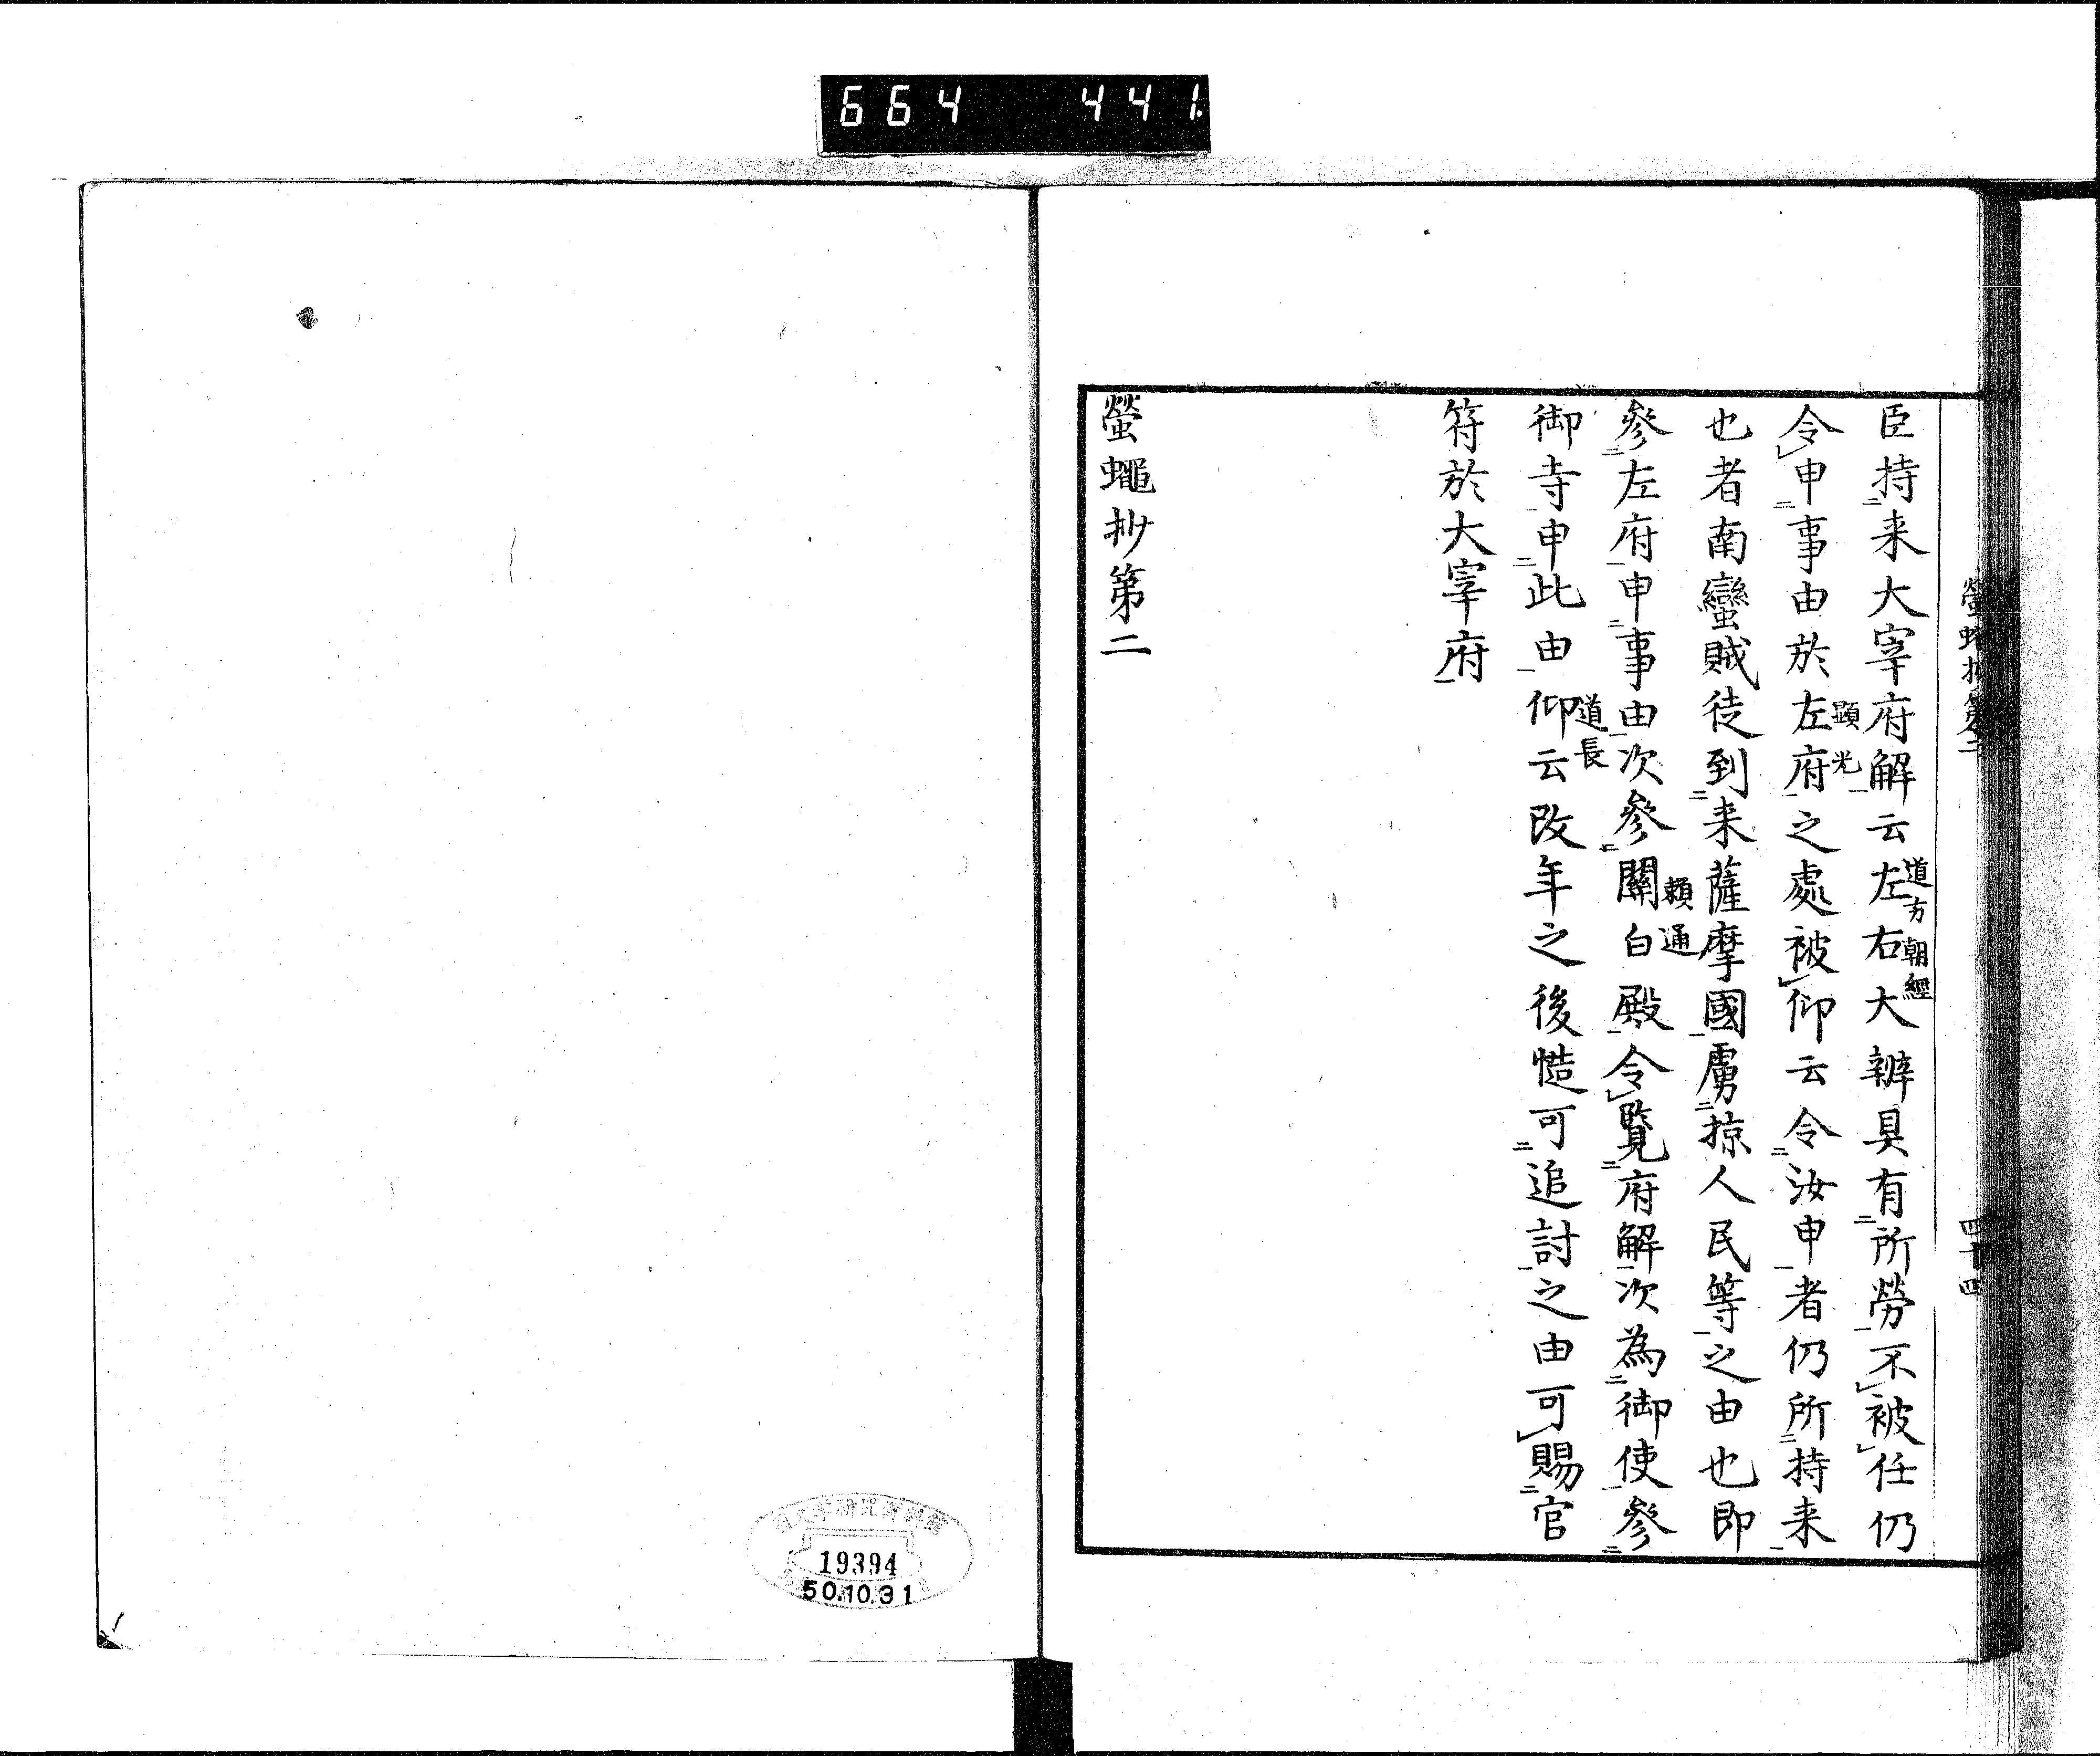 664 441.
螢蠅抄第二
四十四
臣持来大宰府解云左右大辨具有所勞不被任仍
道方朝經
令申事由於左府之處被仰云令汝申者仍所持来
顕光
也者南蠻賊徒到来薩摩國虜掠人民等之由也即
參左府申事由次參關白殿令覧府解次為御使參
頼通
御寺申此由仰云改年之後慥可追討之由可賜官
道長
符於大宰府
螢蠅抄第二
19394
50.10.31